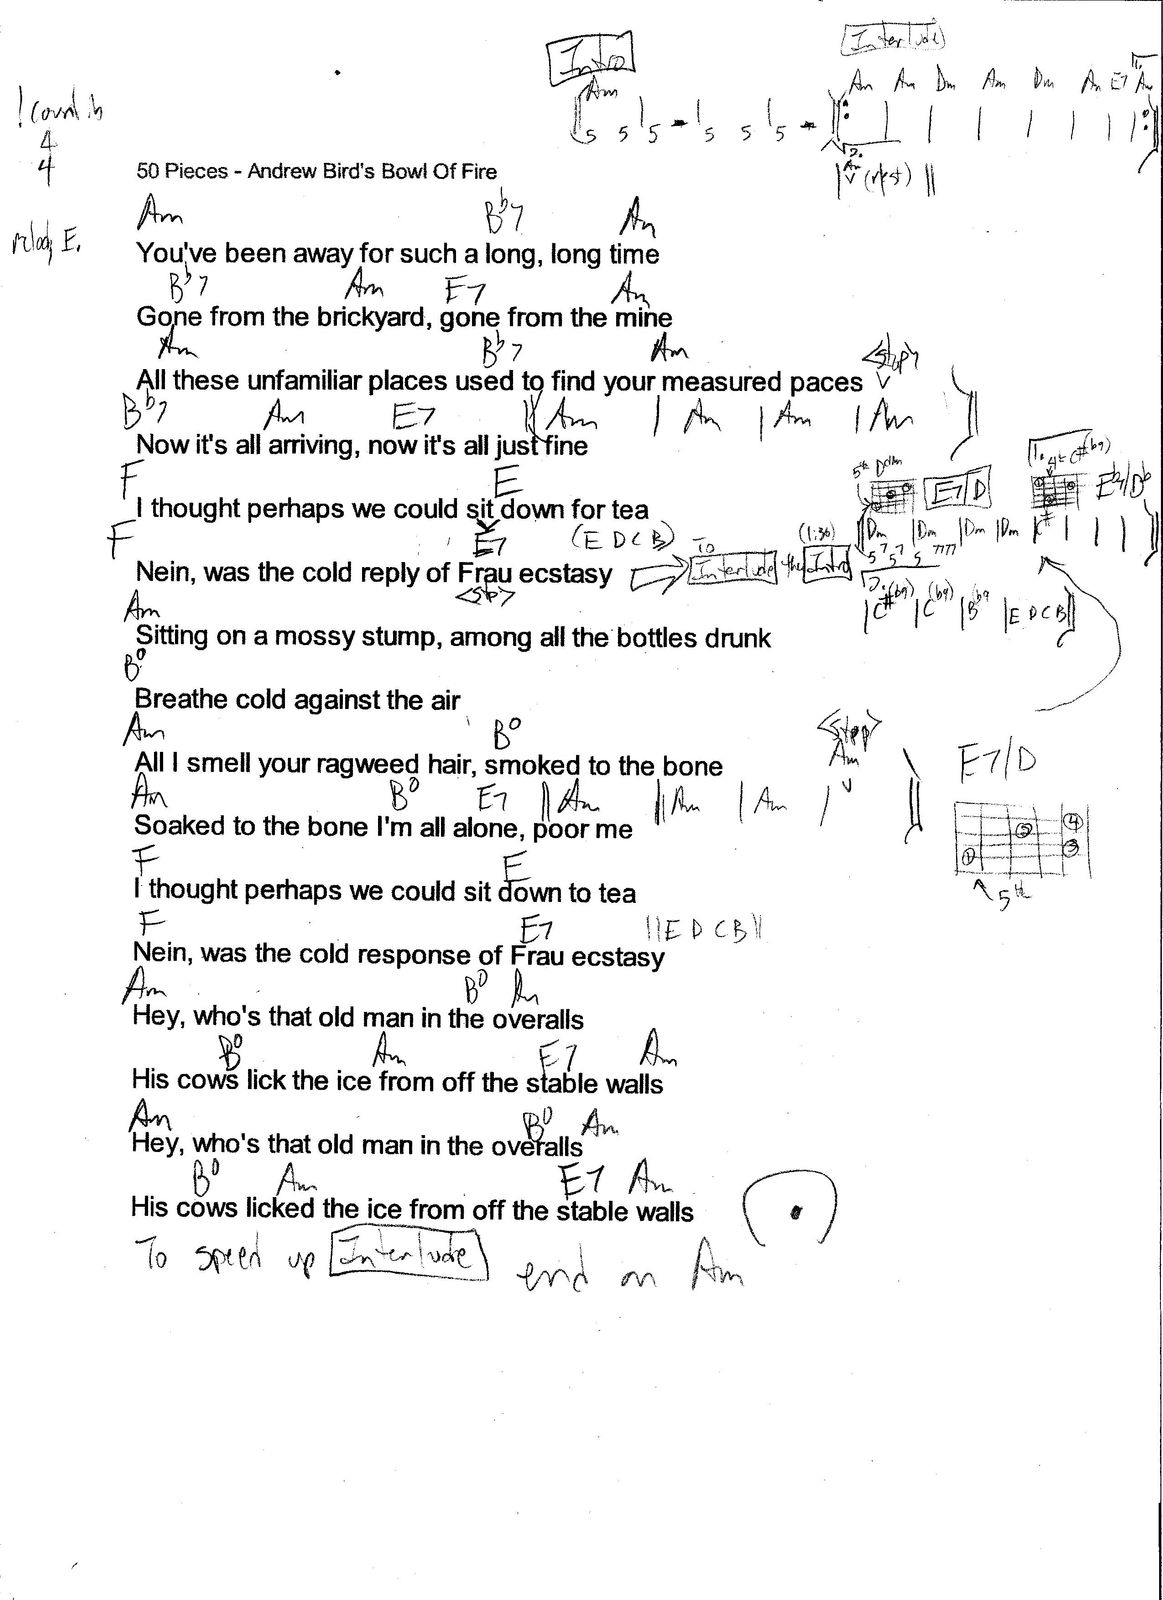 Intro
Interlude
! Count in
4
4
Am
5 5 5 - 5 5 5 -
Am Am Dm Am Dm Am E7 Am
1.
2.
Am
(rest)
50 Pieces - Andrew Bird's Bowl Of Fire
melody E.
Am Bb7 Am
You've been away for such a long, long time
Bb7 Am E7 Am
Gone from the brickyard, gone from the mine
Am Bb7 Am <stop>
All these unfamiliar places used to find your measured paces
Bb7 Am E7 || Am | Am | Am | Am
Now it's all arriving, now it's all just fine
F E
I thought perhaps we could sit down for tea
F E7 (E D C B)
Nein, was the cold reply of Frau ecstasy
<stop>
To Interlude then Intro
(1:36)
5th
E7/D
1. 4th C#(b9)
| Dm | Dm | Dm | Dm | C# | | |
2.
| C#(b9) | C(b9) | Bb9 | E D C B ||
Am
Sitting on a mossy stump, among all the bottles drunk
B°
Breathe cold against the air
Am B° <stop> Am
All I smell your ragweed hair, smoked to the bone
Am B° E7 || Am || Am | Am |
Soaked to the bone I'm all alone, poor me
E7/D
1 2 4 3
5th
F E
I thought perhaps we could sit down to tea
F E7 || E D C B ||
Nein, was the cold response of Frau ecstasy
Am B° Am
Hey, who's that old man in the overalls
B° Am E7 Am
His cows lick the ice from off the stable walls
Am B° Am
Hey, who's that old man in the overalls
B° Am E7 Am
His cows licked the ice from off the stable walls
To speed up Interlude end on Am